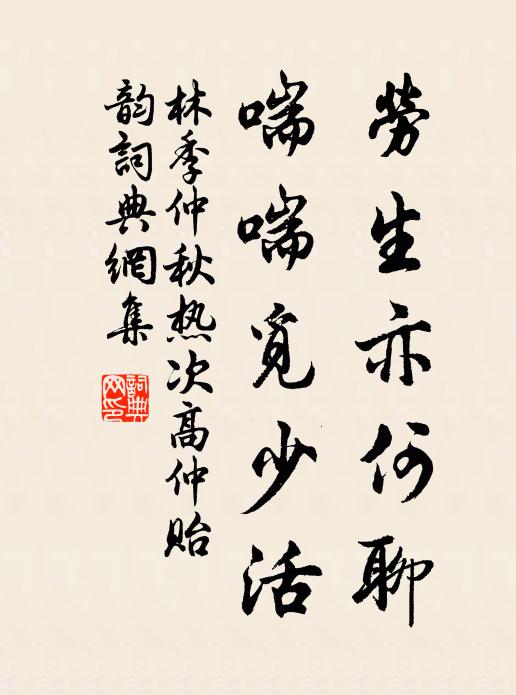 勞生亦何聊
喘喘覓少活
林季仲秋热次高仲貽
韵詞典網集
詞典网印